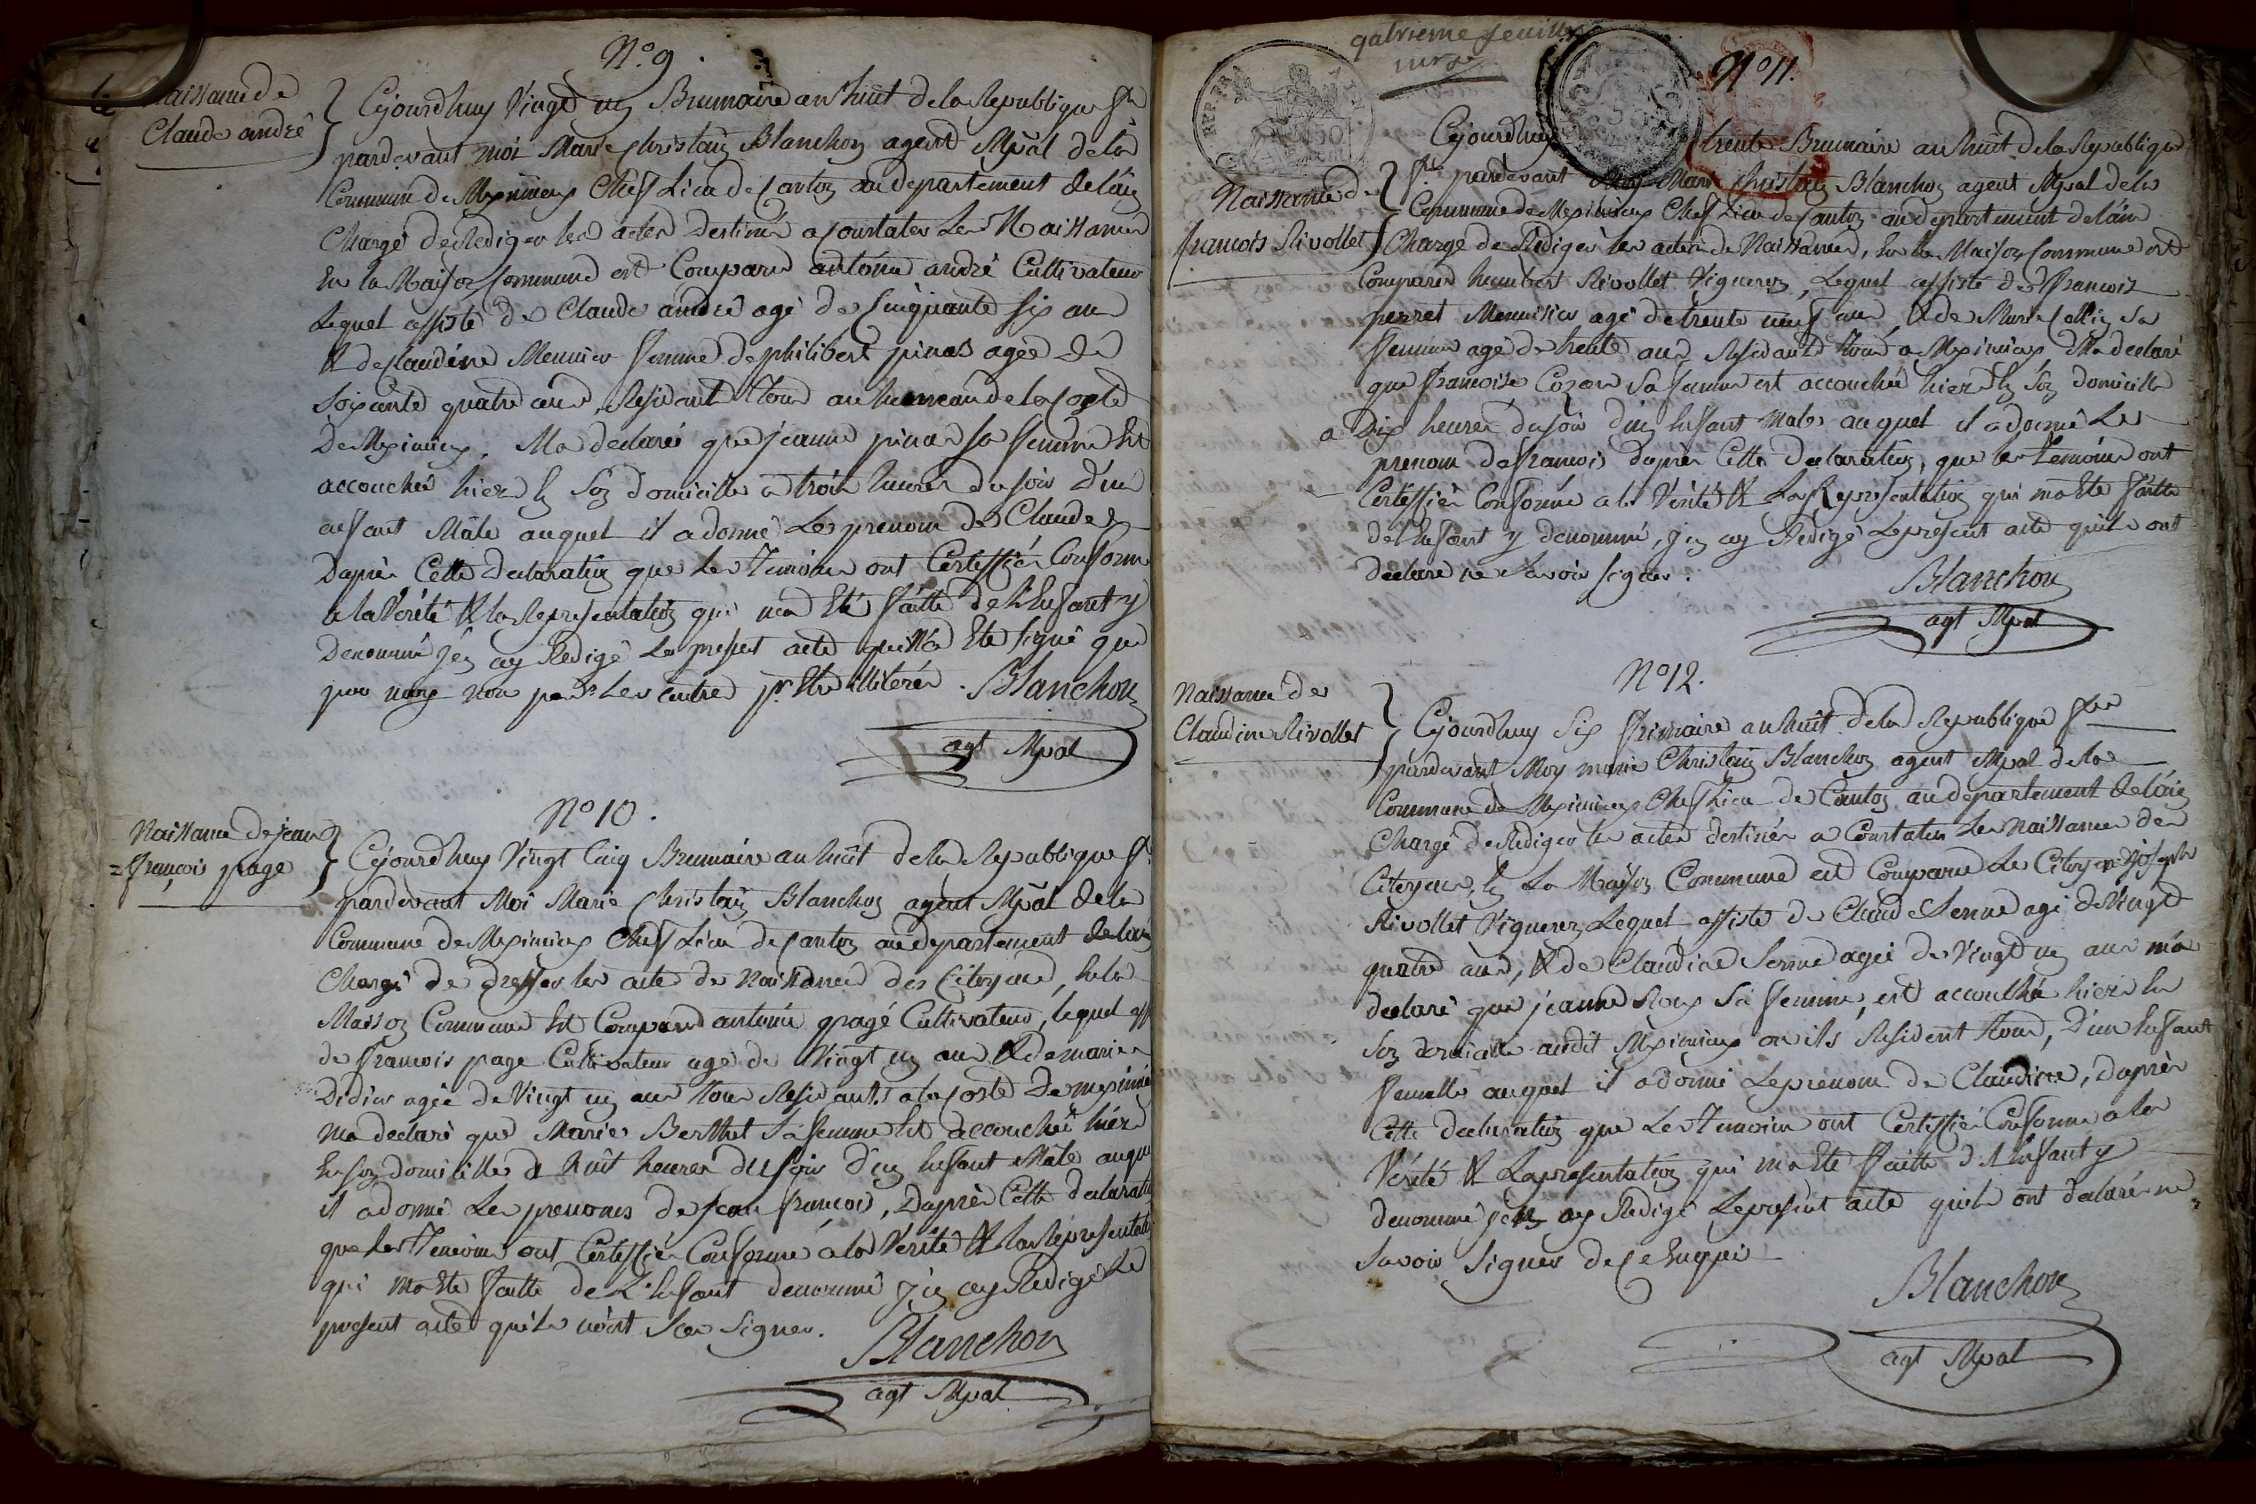 N.° 9.
Naissance de
Claude andré
Cejourdhuy Vingt un Brumaire an huit de la Republique fse
pardevant moi Marie Christain Blanchon agent Mpal de la
Commune de Meximieux Chef Lieu de Canton au departement de l'ain
Chargé de Rediger les actes Destinés a Constater Les Naissances
En la Maison Commune est Comparu antoine andré Cultivateur
Lequel assisté de Claude andre agé de Cinquante six ans
& de Claudine Meunier femme de philibert pinas agée de
Soixante quatre ans, Residants tous au hameau de la Coste
De Meximieux. Ma declaré que jeanne pinas sa femme Est
accouchée hier En Son domicille a trois heures du soir D'un
enfant Mâle auquel il a donné Les prenom de Claude
Daprès Cette Declaration que Les Temoins ont Certiffiés Conforme
a la Vérité & la Representation qui ma Eté faitte de l'Enfant y
Denommé j'en ay Redigé Le present acte qui N'a Eté signé que
par moy non par Les autres pr. Etre illiterés. Blanchon
agt Mpal
N° 10.
Naissance de jean
= françois page
Cejourdhuy Vingt Cinq Brumaire an huit de la Republique fe.
pardevant Moi Marie Christain Blanchon agent Mpal de la
Commune de Meximieux Chef Lieu de Canton au departement de lain
Chargé de dresser les acte de Naissance des Citoyens, En la
Maison Commune Est Comparu antoine page Cultivateur, lequel ass
de francois page Cultivateur agé de Vingt un ans & de marie
Didier agée de Vingt un ans tous Residants a la Coste De meximie
ma declaré que Marie Berthet Sa femme Est accouchée hier
En son domicille a huit heures du soir d'un Enfant Mâle auque
il a donné Les prenoms de jean françois, D'après Cette declaratio
que Les Temoins ont Certiffiés Conforme a la Verité & la Representati
qui ma Eté faitte de L'Enfant denommé j'en ay Redigé Le
present acte qu'ils n'ont Scu Signer.
Blanchon
agt Mpal
quatrieme feuillet
N° 11.
REP. FRA.
Naissance de
francois Rivollet
Cejourdhuy trente Brumaire an huit de la Republique
fse pardevant Moy Marie Christain Blanchon agent Mpal de la
Commune de Meximieux Chef Lieu de Canton au departement de l'ain
Chargé de Rediger les actes de Naissances, En la Maison Commune est
Comparu humbert Rivollet Vigneron, Lequel assisté de francois
perret Menuisier agé de trente neuf ans, & de Marie Collin sa
femme agé de trente ans Residants tous a Meximieux, Ma declaré
que françoise Cozon Sa femme est accouchée hier En Son domicille
a Dix heures du soir d'un Enfant Male auquel il a donné Le
prenom de francois daprès Cette declaration, que les temoins ont
Certiffiés Conforme a la Vérité & La Representation qui ma Eté faitte
de l'Enfant y denommé, j'en ay Redigé Le present acte qu'ils ont
declaré ne Savoir signer.
Blanchon
agt Mpal
N° 12.
Naissance de
Claudine Rivollet
Cejourdhuy Six frimaire an huit de la Republique fse
pardevant Moy marie Christain Blanchon agent Mpal de la
Commune de Meximieux Chef Lieu de Canton au departement de l'ain
Chargé de Rediger les actes destinés a Constater Les Naissances des
Citoyens, En La Maison Commune est Comparu Le Citoyen joseph
Rivollet Vigneron, Lequel assisté de Claude Senne agé de Vingt
quatre ans, & de Claudine Senne agée de Vingt un ans m'a
declaré que jeanne Roux Sa femme, est accouchée hier En
Son domicille audit Meximieux ou ils Resident tous, D'un Enfant
femelle auquel il a donné Le prénom de Claudine, D'après
Cette declaration que Les Temoins ont Certiffié Conforme a la
Vérité & La presentation qui ma Eté faitte de l'Enfant y
denommé j'en ay Redigé Le present acte qu'ils ont declaré ne
Savoir Signer de Ce Enquis
Blanchon
agt Mpal